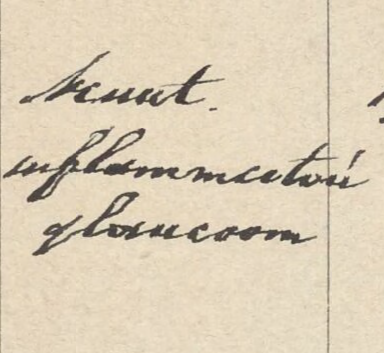 Acuut.
inflammatoir
glaucoom